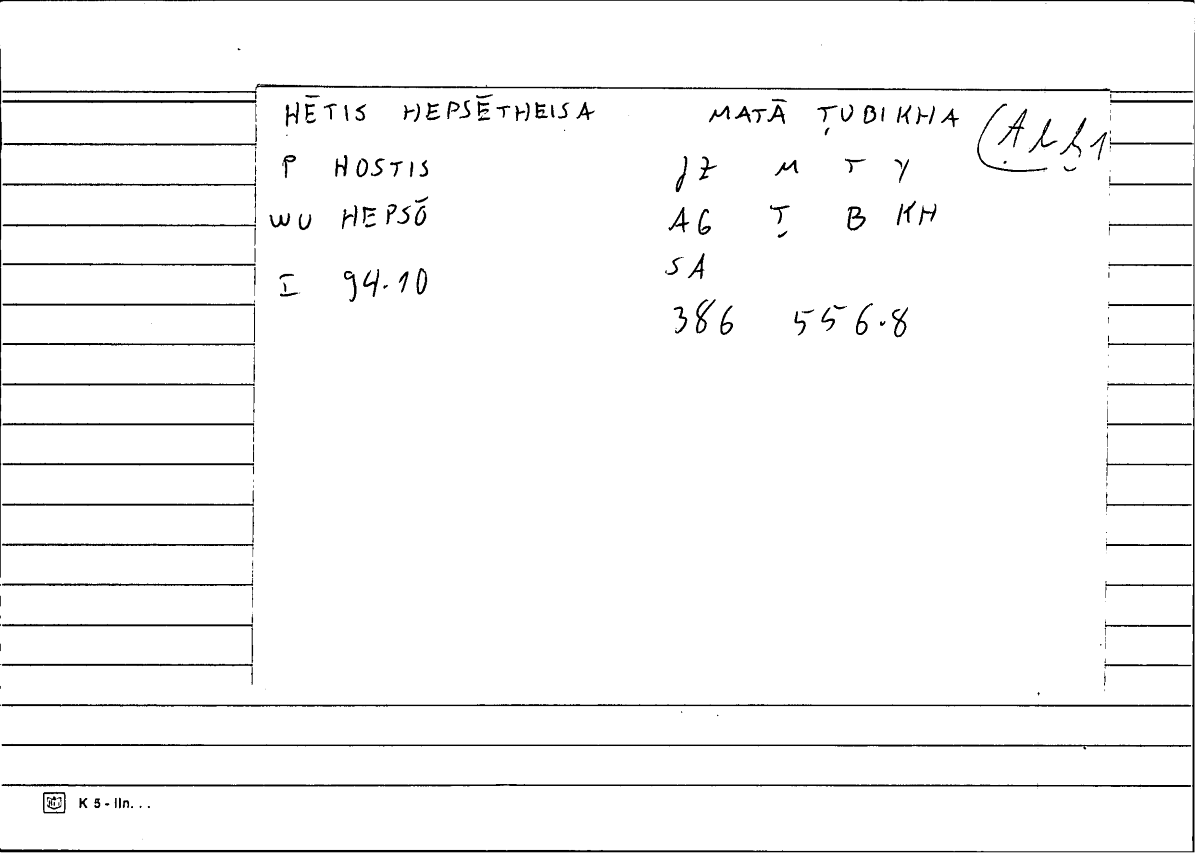 HĒTIS HEPSĒTHEISA MATĀ ṬUBIKHA
P HOSTIS JZ M T Y
WU HEPSŌ AG Ṭ B KH
SA
I 94.10
386 556.8
K 5 - IIn. . .